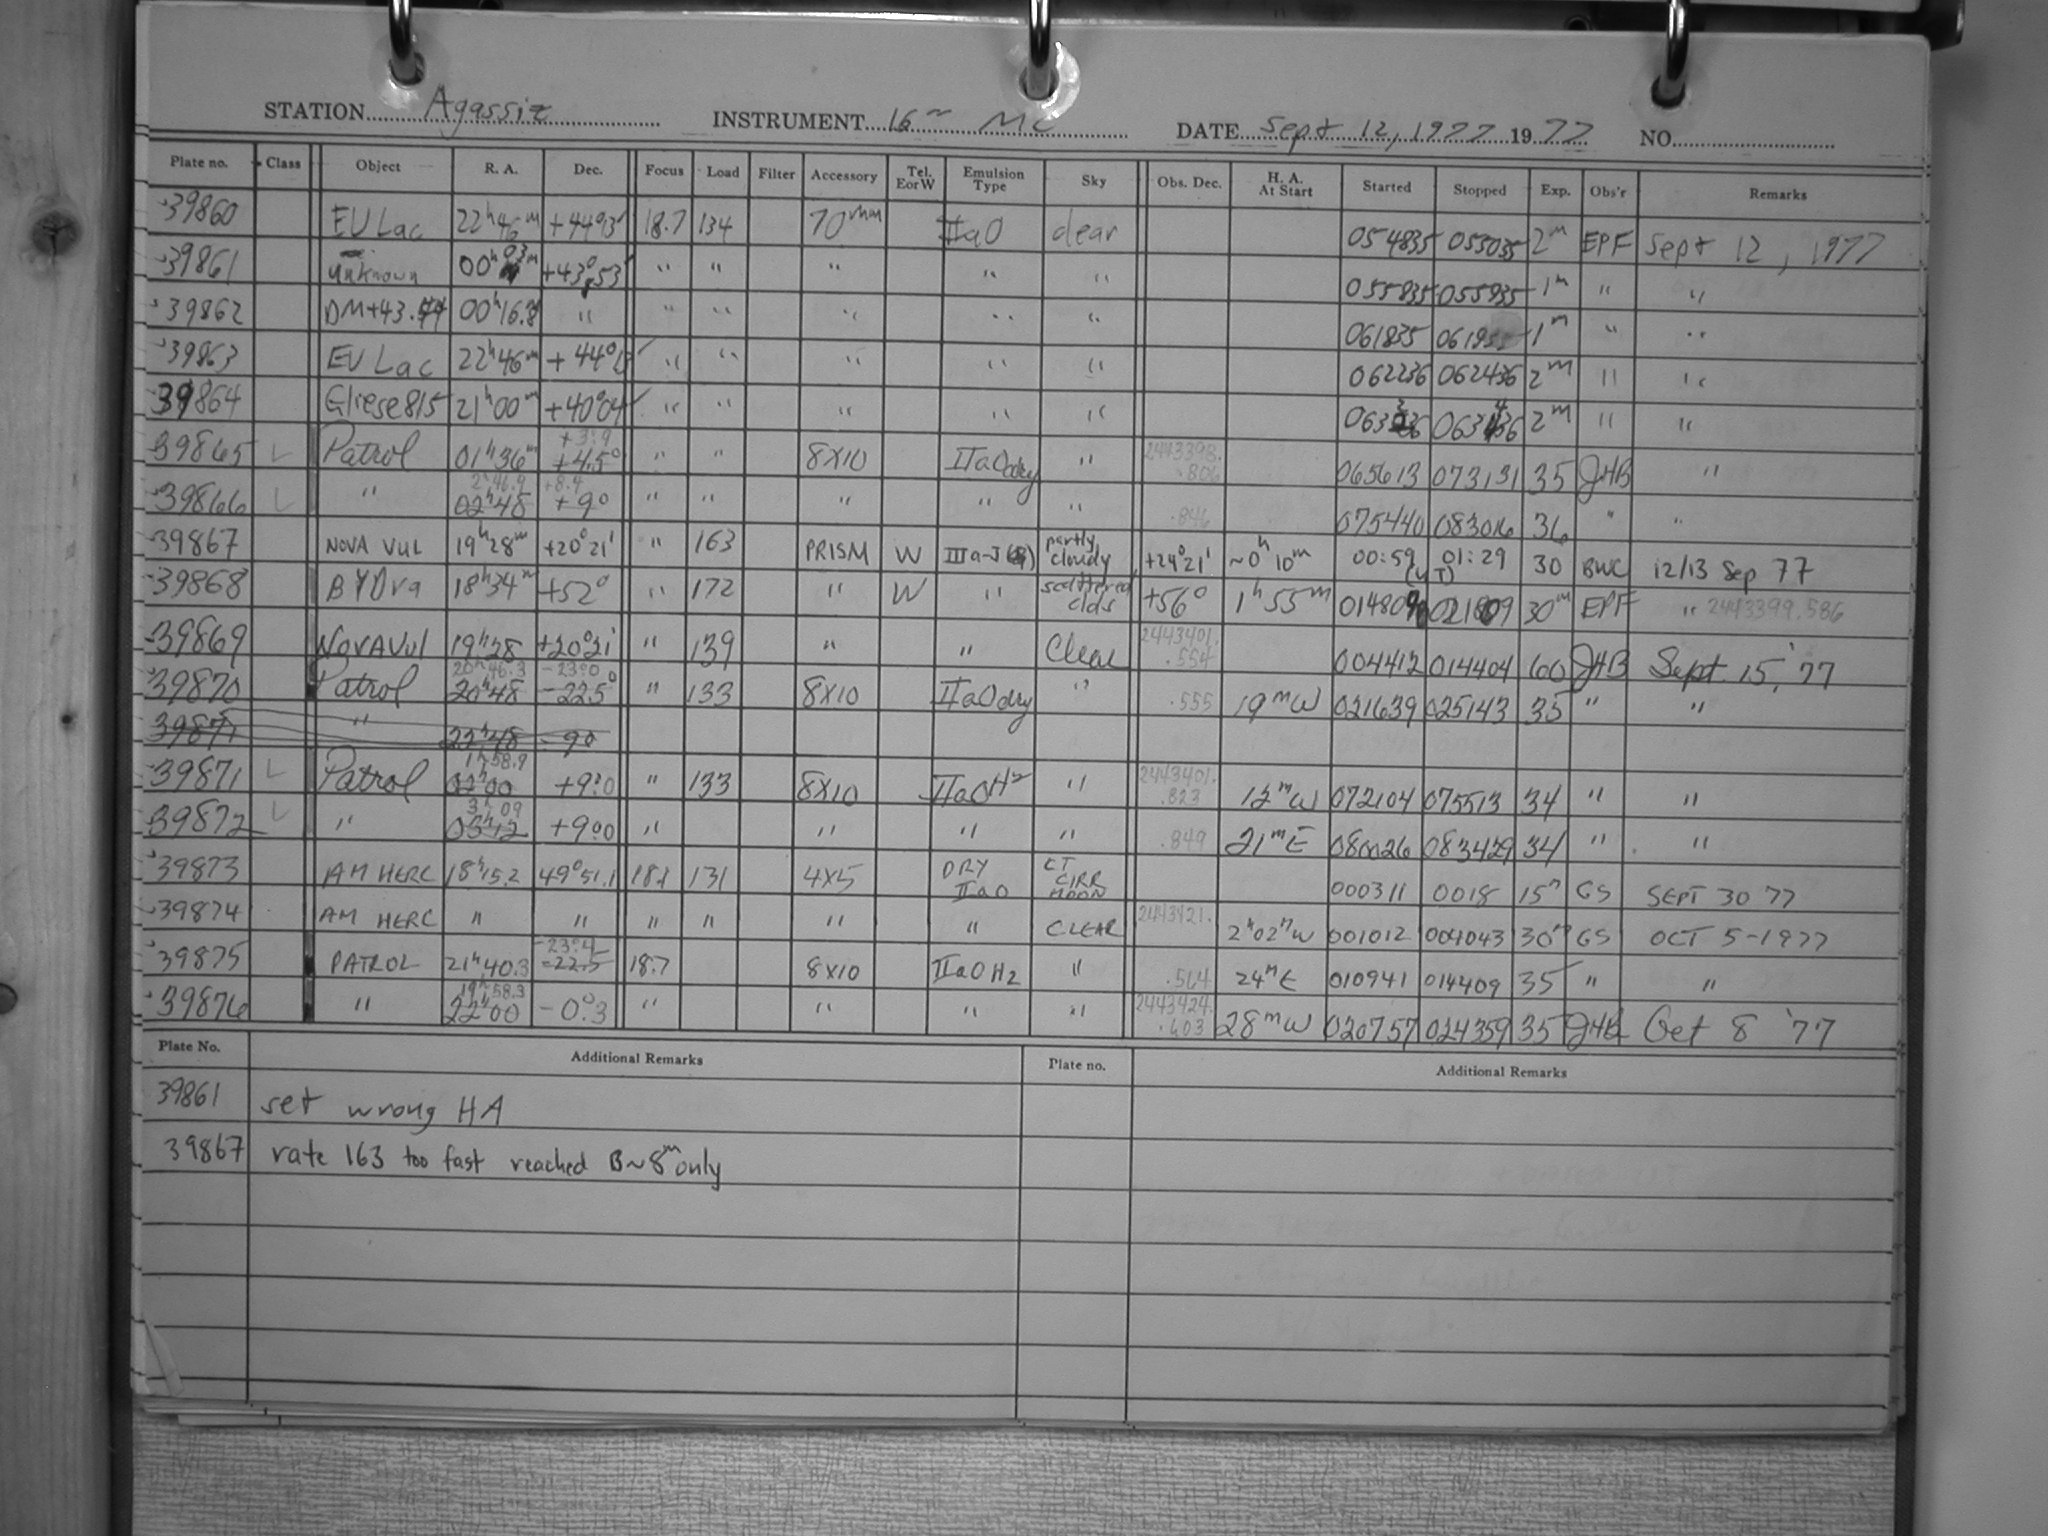 STATION Agassiz INSTRUMENT 16" MC DATE Sept 12, 1977 1977 NO.
Plate no. Class Object R. A. Dec. Focus Load Filter Accessory Tel. E or W Emulsion Type Sky Obs. Dec. H. A. At Start Started Stopped Exp. Obs'r Remarks
39860 EV Lac 22h46m 18.7 134 70mm IIaO clear 054835 055035 2m EPF Sept 12, 1977
39861 unknown 00h03m +43°53' " " " " " 055835 055935 1m " "
39862 00h16.8 " " " " " " 061835 1m " "
39863 EV Lac 22h46m +44°13' " " " " " 062236 062436 2m " "
39864 Gliese 815 21h00m +40°04' " " " " " 063236 063436 2m " "
39865 Patrol 01h36m +3.9 +4.5° " " 8X10 IIaO dry " 2443398. .806 065613 073131 35 JHB "
39866 " 2h46.9 02h48 +8.4 +9° " " " " " .846 075440 083016 36 " "
39867 NOVA VUL 19h28m +20°21' " 163 PRISM W IIIa-J partly cloudy +24°21' ~0h10m 00:59 (UT) 01:29 30 BWC 12/13 Sep 77
39868 BY Dra 18h34m +52° " 172 " W " scattered clds +56° 1h55m 014809 021809 30m EPF " 2443399.586
39869 Nova Vul 19h28 +20°21' " 139 " " Clear 2443401. .554 004412 014404 60 JHB Sept. 15, '77
39870 Patrol 20h46.3 20h48 -23.0 -22.5° " 133 8X10 IIaO dry " .555 19mW 021639 025143 35 " "
39871 " 22h48 -9°
39871 Patrol 1h58.9 02h00 +9.0 " 133 8X10 IIaO H2 " 2443401. .823 12mW 072104 075513 34 " "
39872 " 3h09 03h12 +9.0 " " " " .849 21mE 080026 083429 34 " "
39873 AM HERC 18h15.2 49°51.1 18.1 131 4X5 DRY IIaO LT CIRR MOON 000311 0018 15m GS SEPT 30 77
39874 AM HERC " " " " " " CLEAR 2443421. 2h02mW 001012 004043 30m GS OCT 5-1977
39875 PATROL 21h40.3 -23.4 -22.5 18.7 8X10 IIaO H2 " .564 24mE 010941 014409 35 " "
39876 " 22h00 -0.3 " " " " 2443424. .603 28mW 020757 024359 35 JHB Oct 8 '77
Plate No. Additional Remarks Plate no. Additional Remarks
39861 set wrong HA
39867 rate 163 too fast reached B~8m only